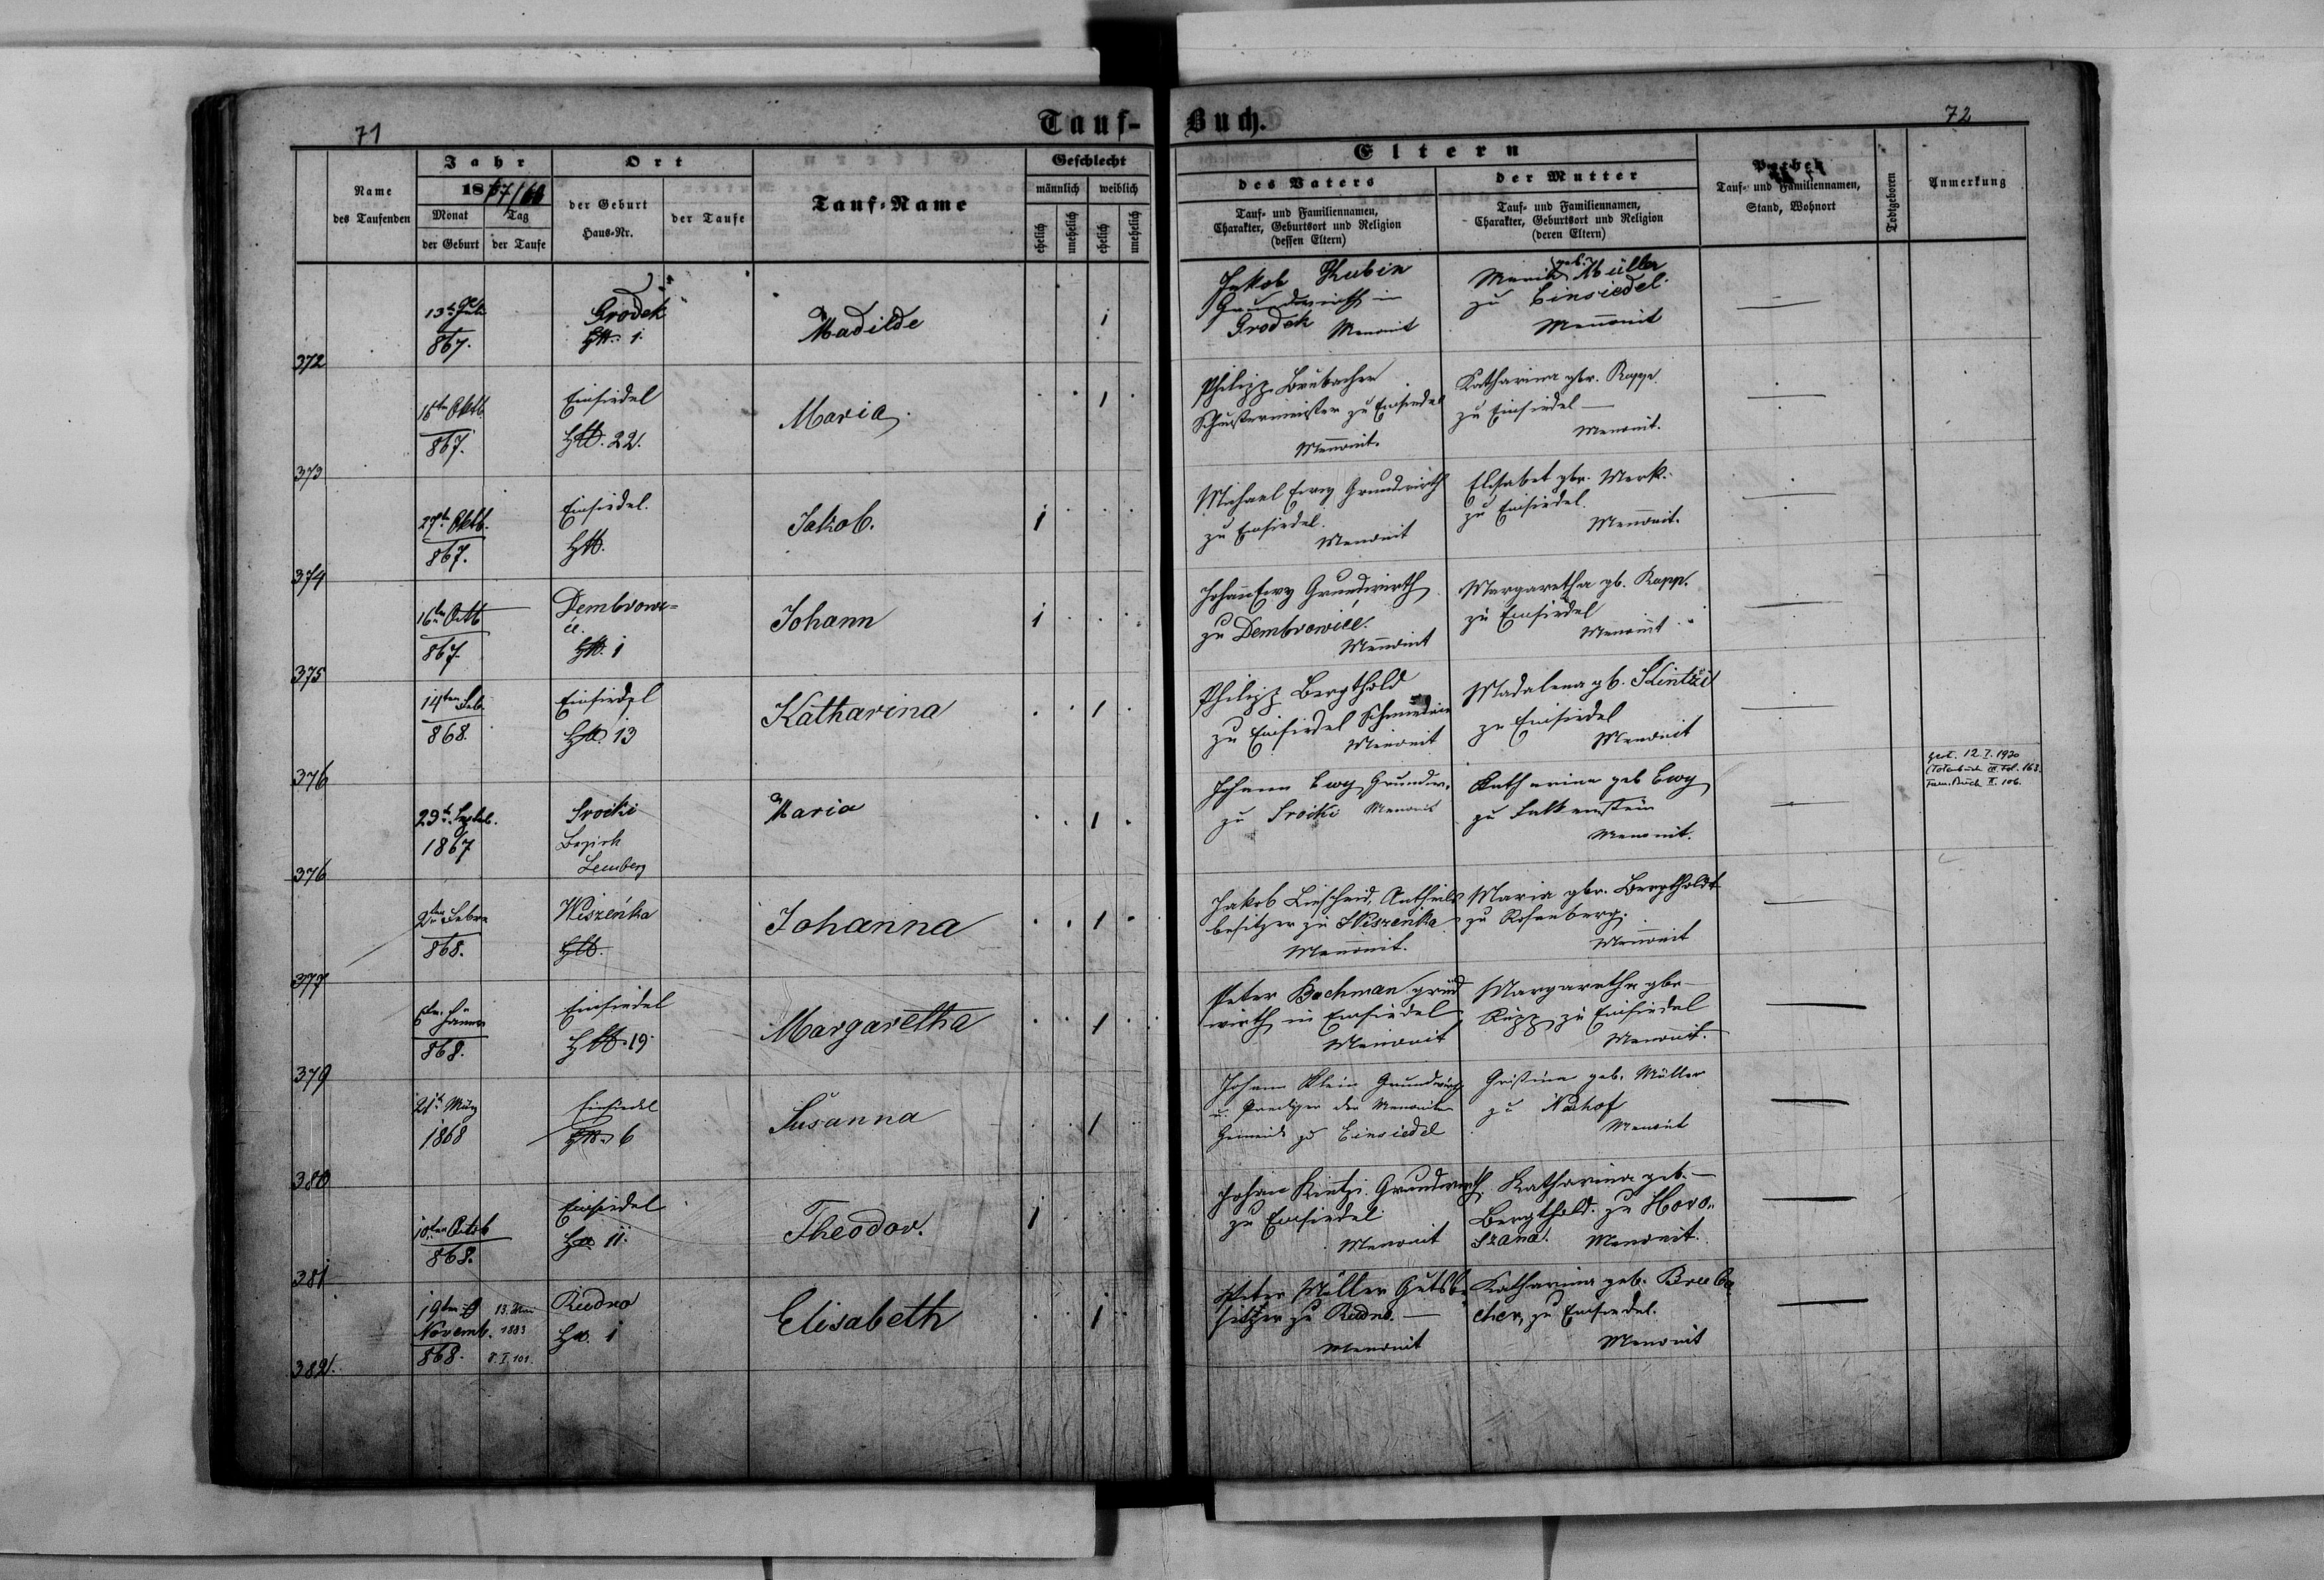 71
Tauf-
Buch.
72
Name
des Taufenden
Jahr
1867/68
Monat
Tag
der Geburt
der Taufe
Ort
der Geburt
Haus-Nr.
der Taufe
Tauf-Name
Geschlecht
männlich
weiblich
ehelich
unehelich
ehelich
unehelich
Eltern
des Vaters
Tauf- und Familiennamen,
Charakter, Geburtsort und Religion
(dessen Eltern)
der Mutter
Tauf- und Familiennamen,
Charakter, Geburtsort und Religion
(deren Eltern)
Pathen
Tauf- und Familiennamen,
Stand, Wohnort
Todtgeboren
Anmerkung
372
13t. Juli
867.
Grodek
1.
Madilde
1
Jakob Rubin
Grundwirth in
Grodek Menonit
Maria geb. Müller
zu Einsiedel.
Menonit
373
16ten Oktb
867.
Einsiedel
22.
Maria
1
Philipp Brubacher
Schustermeister zu Einsiedel
Menonit.
Katharina gbr. Rupp
zu Einsiedel
Menonit.
374
27t. Oktb.
867.
Einsiedel.
Jakob.
1
Michael Ewy Grundwirth
zu Einsiedel.
Menonit
Elisabet gbr. Merk.
zu Einsiedel.
Menonit.
375
16ten Octb
867
Dembrowi=
ce.
1
Johann
1
Johann Ewy Grundwirth
zu Dembrowice.
Menonit
Margaretha gb. Rupp.
zu Einsiedel
Menonit
376
14ten Feb.
868.
Einsiedel
13
Katharina
1
Philipp Bergthold
zu Einsiedel
Menonit
Madalena gb. Kintzi
zu Einsiedel
Menonit
376
23t. Septeb.
1867
Srocki
Bezirk
Lemberg
Maria
1
Johann Ewy Grundw.
zu Srocki Menonit
Katharina geb Ewy
zu Falkenstein
Menonit.
gest. 12. I. 1920
(Totenbuch III. Fol. 163.
Fam. Buch II. 106.
377
2ten Febr.
868.
Wiszeńka
Johanna
1
Jakob Linscheid, Antheils
besitzer zu Wiszeńka
Menonit.
Maria gbr. Bergtholdt
zu Rosenberg.
Menonit
379
6ten Jänner
868.
Einsiedel
19.
Margaretha
1
Peter Bachman grund
wirth in Einsiedel
Menonit
Margaretha gbr
Rupp zu Einsiedel
Menonit.
380
21t. März
1868
Einsiedel
6
Susanna
1
Johann Klein Grundwirth
u. Prediger der Menoniten
Gemeinde zu Einsiedel
Gristina geb. Müller
zu Neuhof
Menonit
381
10ten Octob
868.
Einsiedel
11.
Theodor.
1
Johann Kintzi. Grundwirth
zu Einsiedel
Menonit
Katharina geb.
Bergthold. zu Horo„
szana. Menonit.
382.
19ten
Novemb.
868.
1883
8. I. 101.
Rudno
1
Elisabeth
1
Peter Müller Gutsbe
sitzer zu Rudno.
Menonit
Katharina geb. Bruba
cher, zu Einsiedel.
Menonit